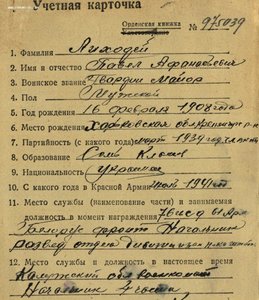 Учетная карточка
Орденская книжка
№ 975039
1. Фамилия Лиходей
2. Имя и отчество Павел Афанасьевич
3. Воинское звание Гвардии Майор
4. Пол Мужской
5. Год рождения 16 февраля 1908 года
6. Место рождения Харьковская обл
7. Партийность (с какого года) март 1939 года
8. Образование Семь Классов
9. Национальность украинец
10. С какого года в Красной Армии 1941 год
11. Место службы (наименование части) и занимаемая
должность в момент награждения
фронт Начальник
развед отдел дивизии
12. Место службы и должность в настоящее время
Калужский обл военкомат
Начальник 4 части